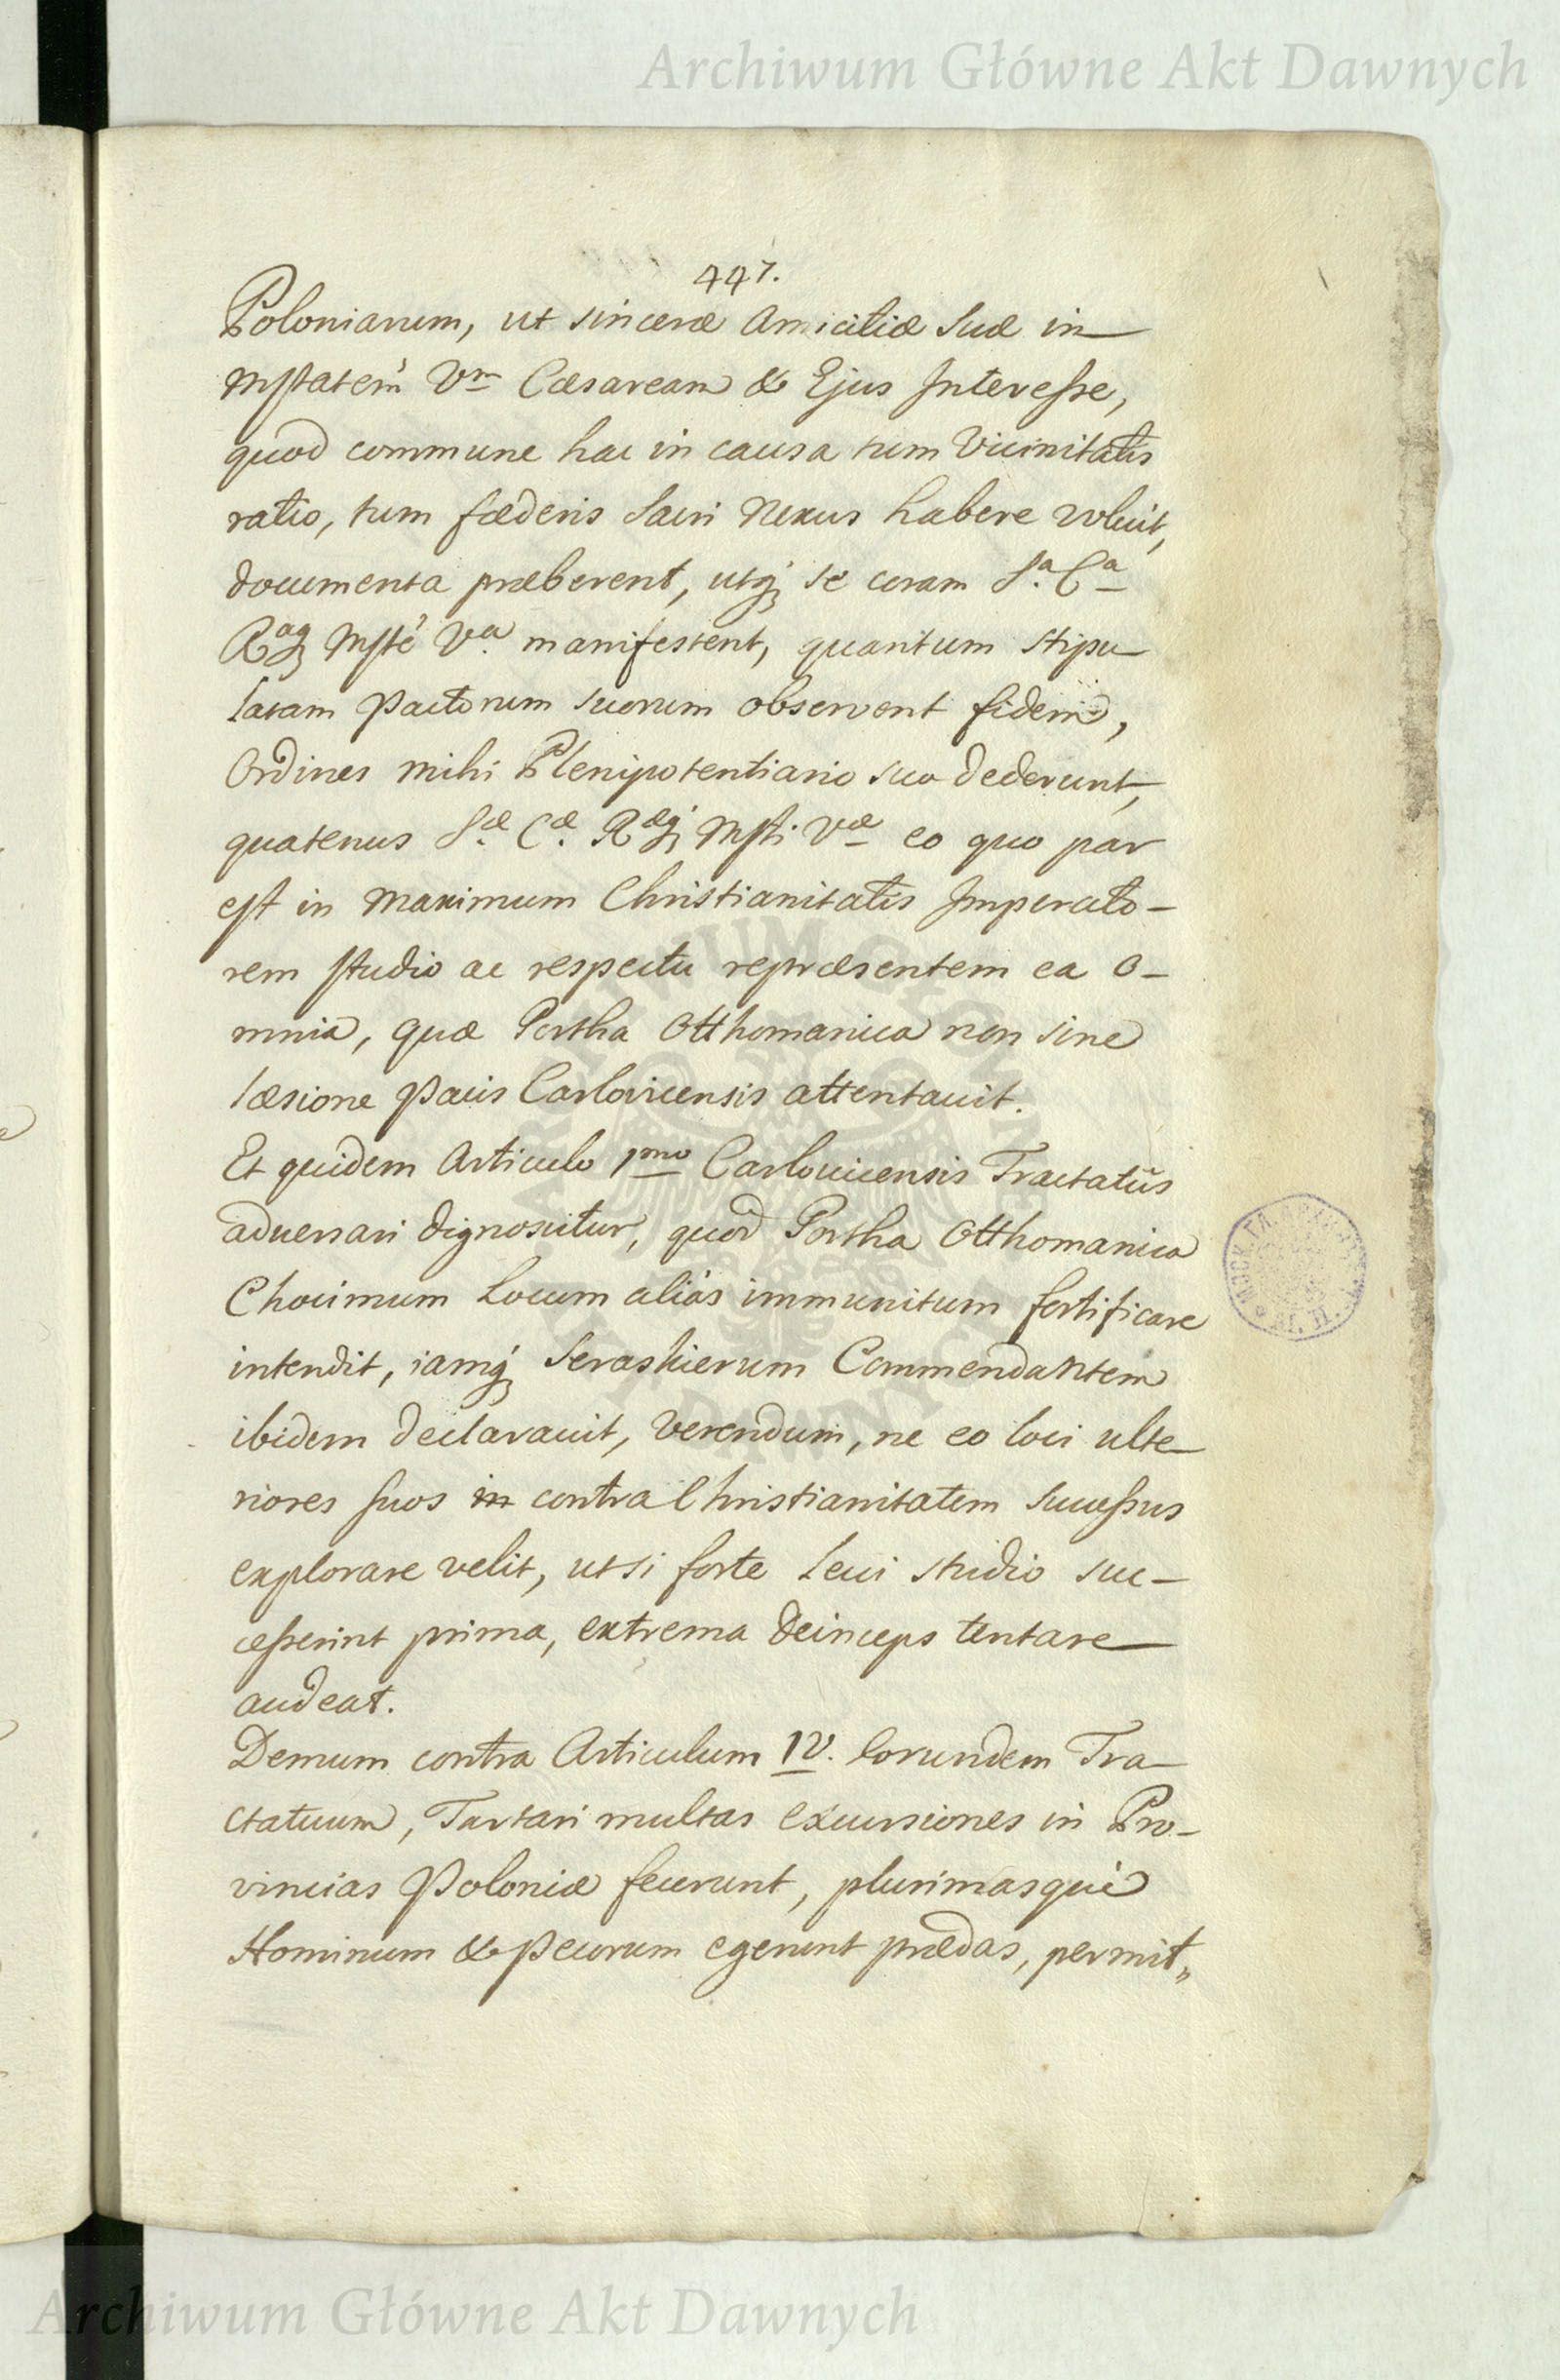 Archiwum Główne Akt Dawnych
447.
Poloniarum, ut sinceræ Amicitiæ suæ in
Mstatem Vm Cæsaream & Ejus Interesse,
quod commune hac in causa tum Vicinitatis
ratio, tum fæderis Sacri Nexus habere voluit,
documenta præberent, utq; se coram S.a C.a
Raq; Mste V.a manifestent, quantum stipu
latam Pactorum suorum observent fidem,
Ordines mihi Plenipotentiario suo dederunt,
quatenus S.æ C.æ Ræq; Msti Væ eo quo par
est in Maximum Christianitatis Imperato-
rem studio ac respectu repræsentem ea o-
mnia, quæ Portha Otthomanica non sine
læsione Pacis Carlovicensis attentavit.
Et quidem Articulo 1mo Carlovicensis Tractatûs
adversari dignoscitur, quod Portha Otthomanica
Chocimum Locum aliàs immunitum fortificare
intendit, iamq; Seraskierum Commendantem
ibidem declaravit, Verendum, ne eo loci ulte
riores suos in contra Christianitatem successus
explorare velit, ut si forte levi studio suc-
cesserint prima, extrema deinceps tentare
audeat.
Demum contra Articulum IV. eorundem Tra-
ctatuum, Tartari multas excursiones in Pro-
vincias Poloniæ fecerunt, plurimasque
Hominum & Pecorum egerunt prædas, permit„
Archiwum Główne Akt Dawnych